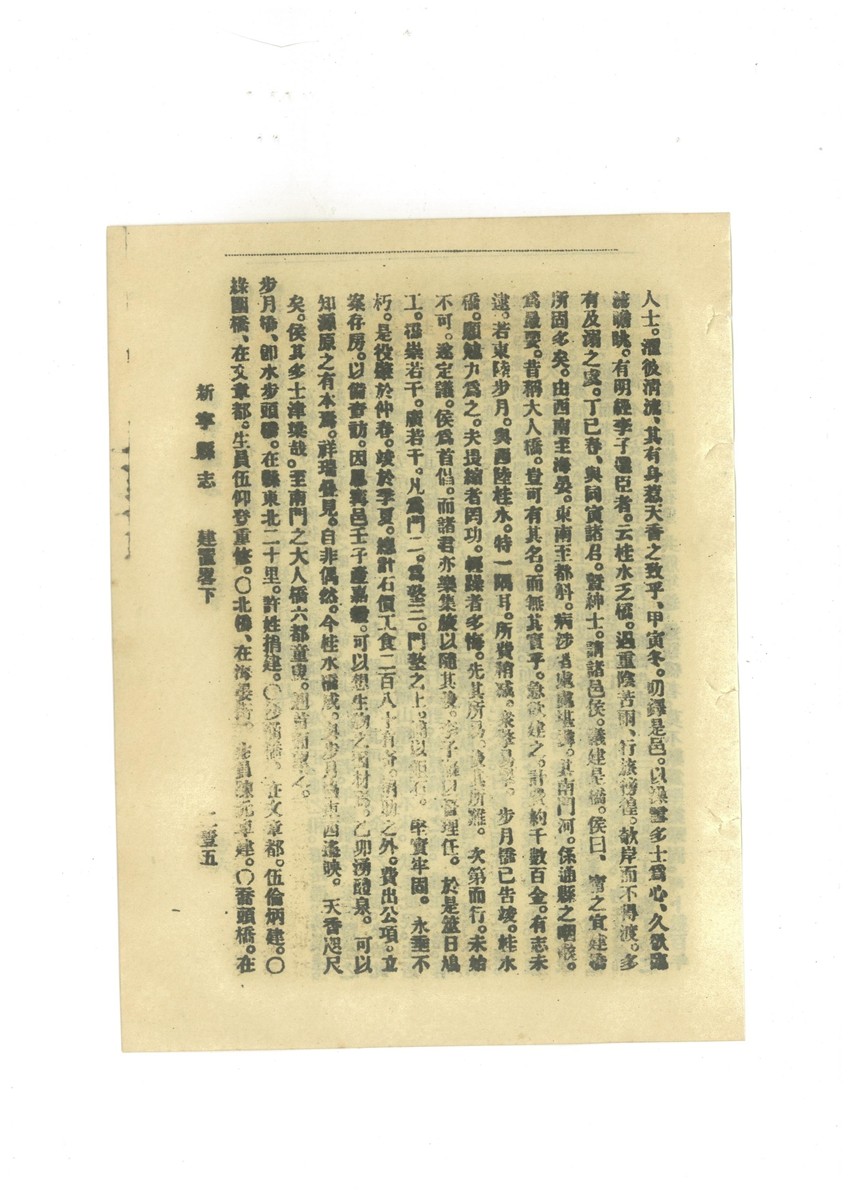 人士。濯彼清流、其有身惹天香之致乎、甲寅冬。叨鐸是邑。以澡雪多士爲心、久欲臨
流瞻眺。有明經李子 臣者。云桂水乏橋。遇重陰苦雨、行旅徬徨。欹岸而不得渡。多
有及溺之虞。丁巳春、與同寅諸君。暨紳士。請諸邑侯。議建是橋。侯曰、甯之宜建橋
所固多矣。由西南至海晏。東南至都斛。病涉者處處堪 。其南門河。係通縣之咽喉。
爲最要。昔稱大人橋。豈可有其名。而無其實乎。急欲建之。計費約千數百金。有志未
逮。若東陸步月。與西陸桂水。特一隅耳。所費稍減。衆擎易舉。步月橋已告竣。桂水
橋。願勉力爲之。夫畏縮者罔功。輕躁者多悔。先其所易。後其所難。次第而行。未始
不可。遂定議。侯爲首倡。而諸君亦樂集腋以隨其後。李子 以管理任。於是筮日鳩
工。爲崇若干。廣若干。凡爲門二。爲墪三。門墪之上。 以鉅石。堅實牢固。永垂不
朽。是役肇於仲春。竣於季夏。總計石價工食二百八十有奇。捐助之外。費出公項。立
案存房。以備查訪。因思寗邑壬子產嘉 。可以想生物之因材焉。乙卯湧醴泉。可以
知源原之有本焉。祥瑞疊見。自非偶然。今桂水橋成。與步月橋東西遙映。天香咫尺
矣。侯其多士津梁哉。至南門之大人橋六都童叟。翹首而望之。
步月橋、卽水步頭橋。在縣東北二十里。許姓捐建。〇沙 橋。在文章都。伍倫炳建。〇
綠圍橋、在文章都。生員伍仰登重修。〇北橋、在海晏 、 員陳元 建。〇喬頭橋。在
新寧縣志 建置畧下 五